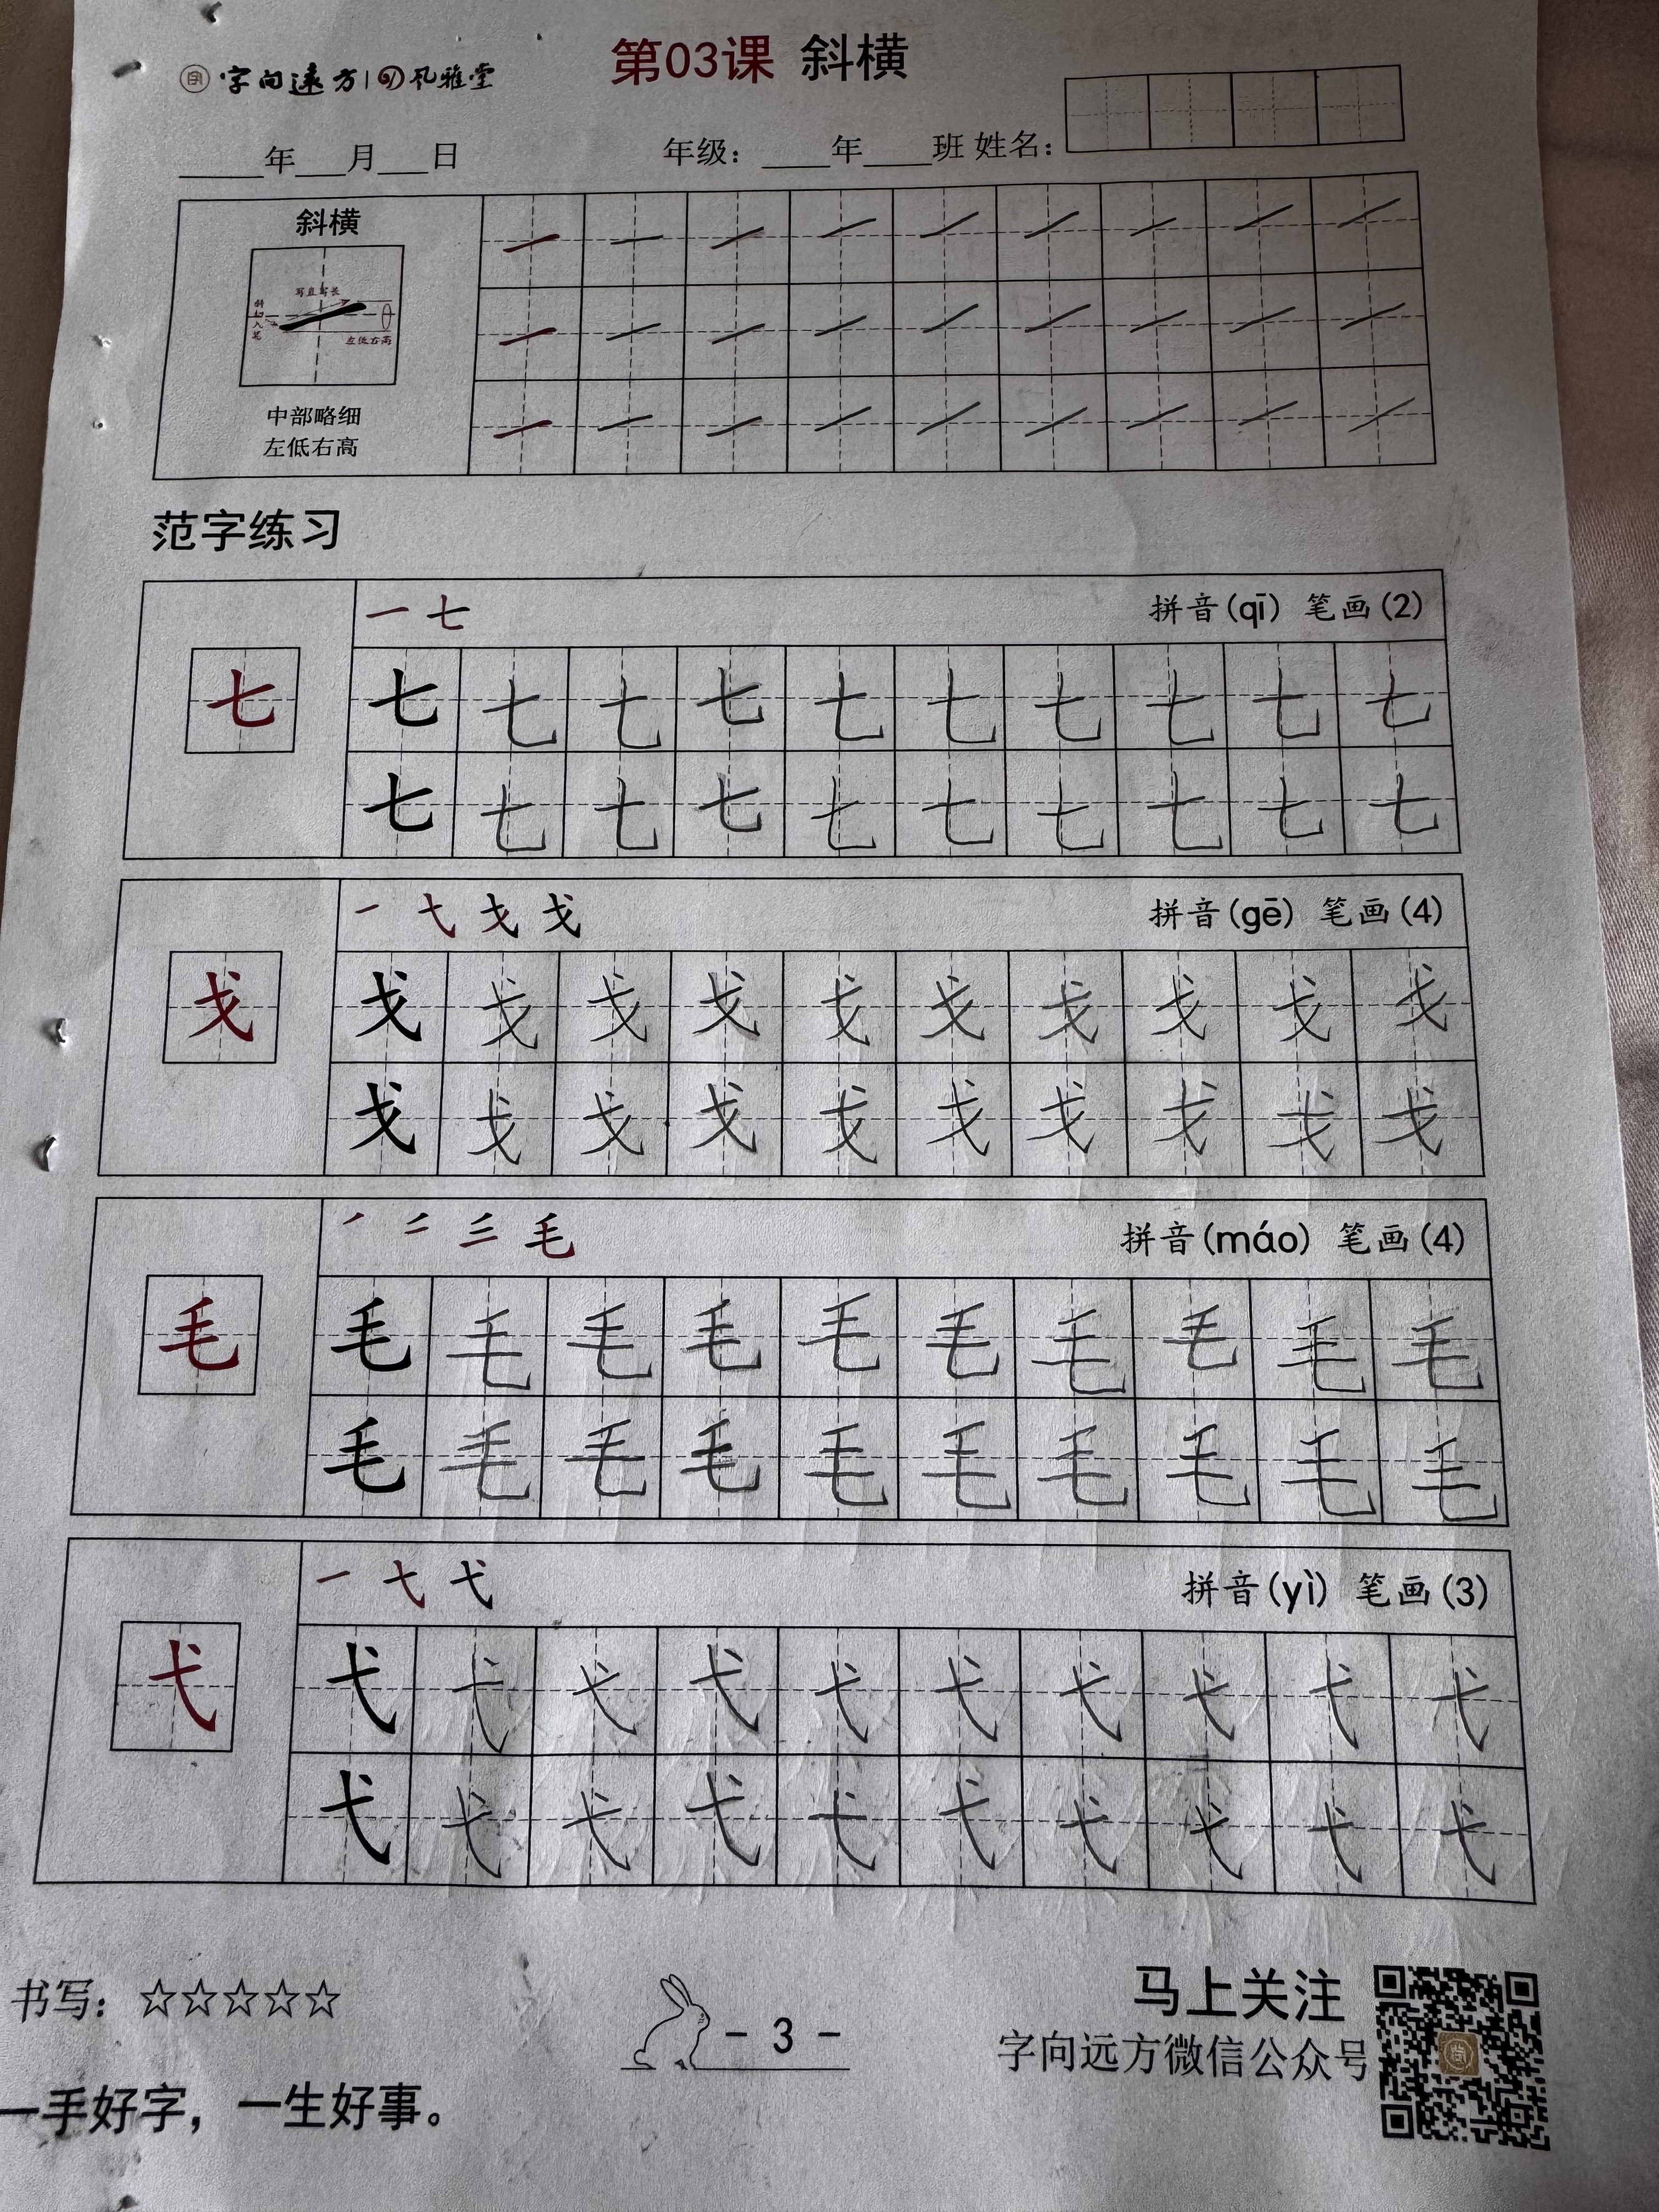 字向遠方 | 风雅堂
第03课 斜横
年 月 日 年级: 年 班 姓名:
斜横
写直写长
斜切入笔
左低右高
中部略细
左低右高
范字练习
一 七 拼音(qī) 笔画(2)
七 七 七 七 七 七 七 七 七 七 七
七 七 七 七 七 七 七 七 七 七
一 弋 戈 戈 拼音(gē) 笔画(4)
戈 戈 戈 戈 戈 戈 戈 戈 戈 戈 戈
戈 戈 戈 戈 戈 戈 戈 戈 戈 戈
毛 拼音(máo) 笔画(4)
毛 毛 毛 毛 毛 毛 毛 毛 毛 毛 毛
毛 毛 毛 毛 毛 毛 毛 毛 毛 毛
一 弋 拼音(yì) 笔画(3)
弋 弋 弋 弋 弋 弋 弋 弋 弋 弋 弋
弋 弋 弋 弋 弋 弋 弋 弋 弋 弋
书写: ☆☆☆☆☆
- 3 -
马上关注
字向远方微信公众号
一手好字，一生好事。